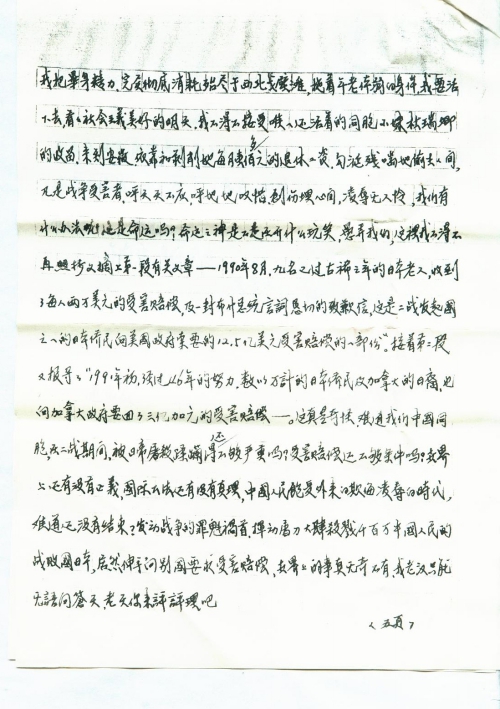 我把毕身精力，完完彻底消耗殆尽于西北戈壁滩，拖着年老体弱的身体，我要活
下去看社会主义美好的明天，我不得不接受唯一还活着的同胞小妹秋瑞卿
的收留，来到安徽，依靠和剥削她每月壹佰元的退休工资，勾延残喘地偷生人间，
凡是战争受害者，呼天天不应，呼地地 创伤埋心间，凌辱无人怜，我们有
什么办法呢？这是命运吗？命运之神是不是在开什么玩笑，愚弄我们，这样我不得不
再照抄文摘上第一段有关文章——1990年8月，九名已过古稀之年的日本老人，收到
了每人两万美元的受害赔偿，及一封布什总统言词恳切的致歉信，这是二战发起国
之一的日本侨民向美国政府索要的12.5亿美元受害赔偿的一部份"。接着第二段
又报导："1991年初，经过46年的努力，数以万计的日本侨民及加拿大的日裔，也
向加拿大政府要回了三亿加元的受害赔偿——。这真是奇怪，难道我们中国同
胞，在二战期间，被日帝屠殺蹂躏得还不够严重吗？受害赔偿还不够条件吗？世界
上还有没有正义，国际公法还有没有真理，中国人民饱受外来的欺侮凌辱的时代，
难道还没有结束？发动战争的罪魁祸首，挥动屠刀大肆殺戮千百万中國人民的
战败國日本，居然伸手问别國要求受害赔偿，世界上的事真无奇不有，我老汉只能
无語问苍天，老天你来評評理吧
〈五頁〉